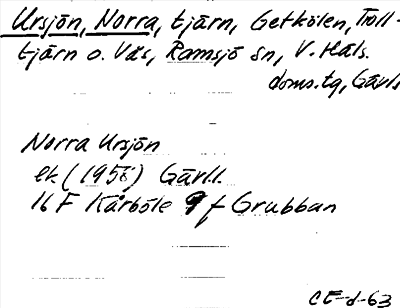 Ursjön, Norra, tjärn, Getkölen, Troll-
tjärn o. Väs, Ramsjö sn, V. Häls.
doms.tg, Gävls
Norra Ursjön
ek. (1956) Gävl.l.
16 F Kårböle 9 f Grubban
CE-d-63